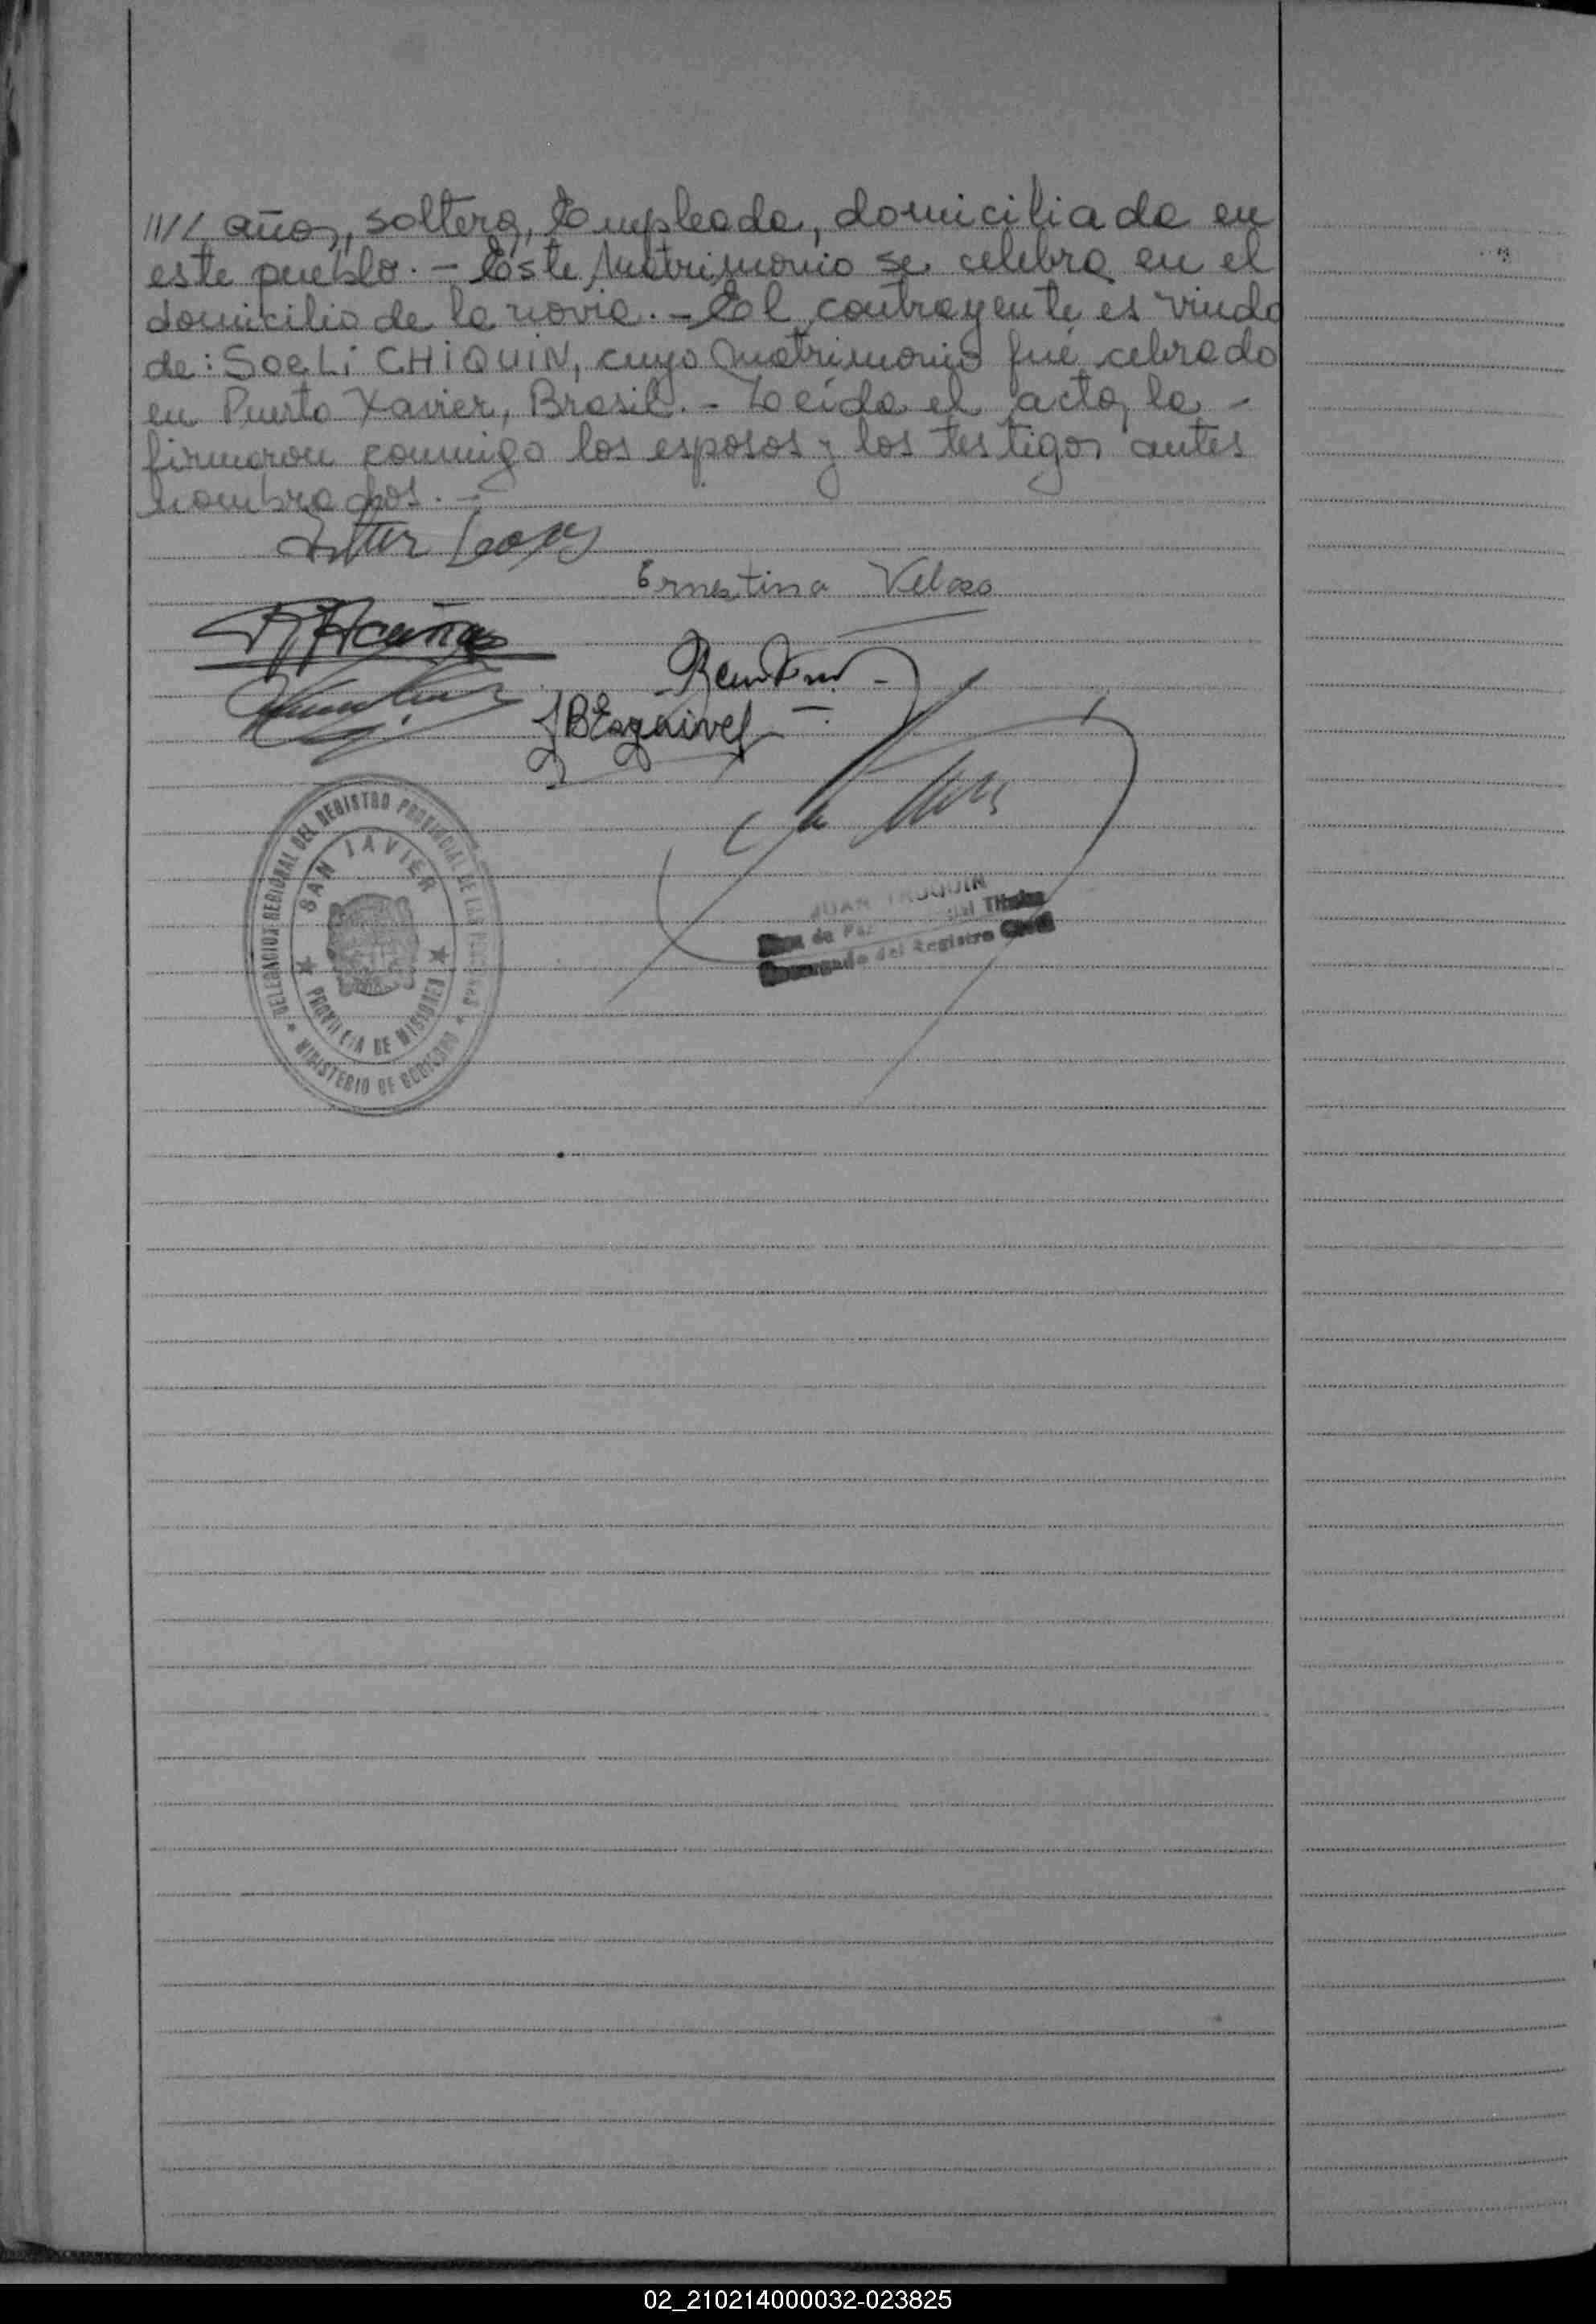 //// años, soltera, Empleada, domiciliada en
este pueblo. - Este Matrimonio se celebra en el
domicilio de la novia. - El contrayente es viudo
de: SOELI CHIQUIN, cuyo Matrimonio fué celbrado
en Puerto Xavier, Brasil. - Leída el acta, la -
firmaron conmigo los esposos y los testigos antes
nombrados. -
Ernestina Veloso
Acuña
JBEsquivel
DELEGACION REGIONAL DEL REGISTRO PROVINCIAL DE LAS PERSONAS
SAN JAVIER
PROVINCIA DE MISIONES
MINISTERIO DE GOBIERNO
JUAN
de Paz Titular
Encargado del Registro Civil
02_210214000032-023825